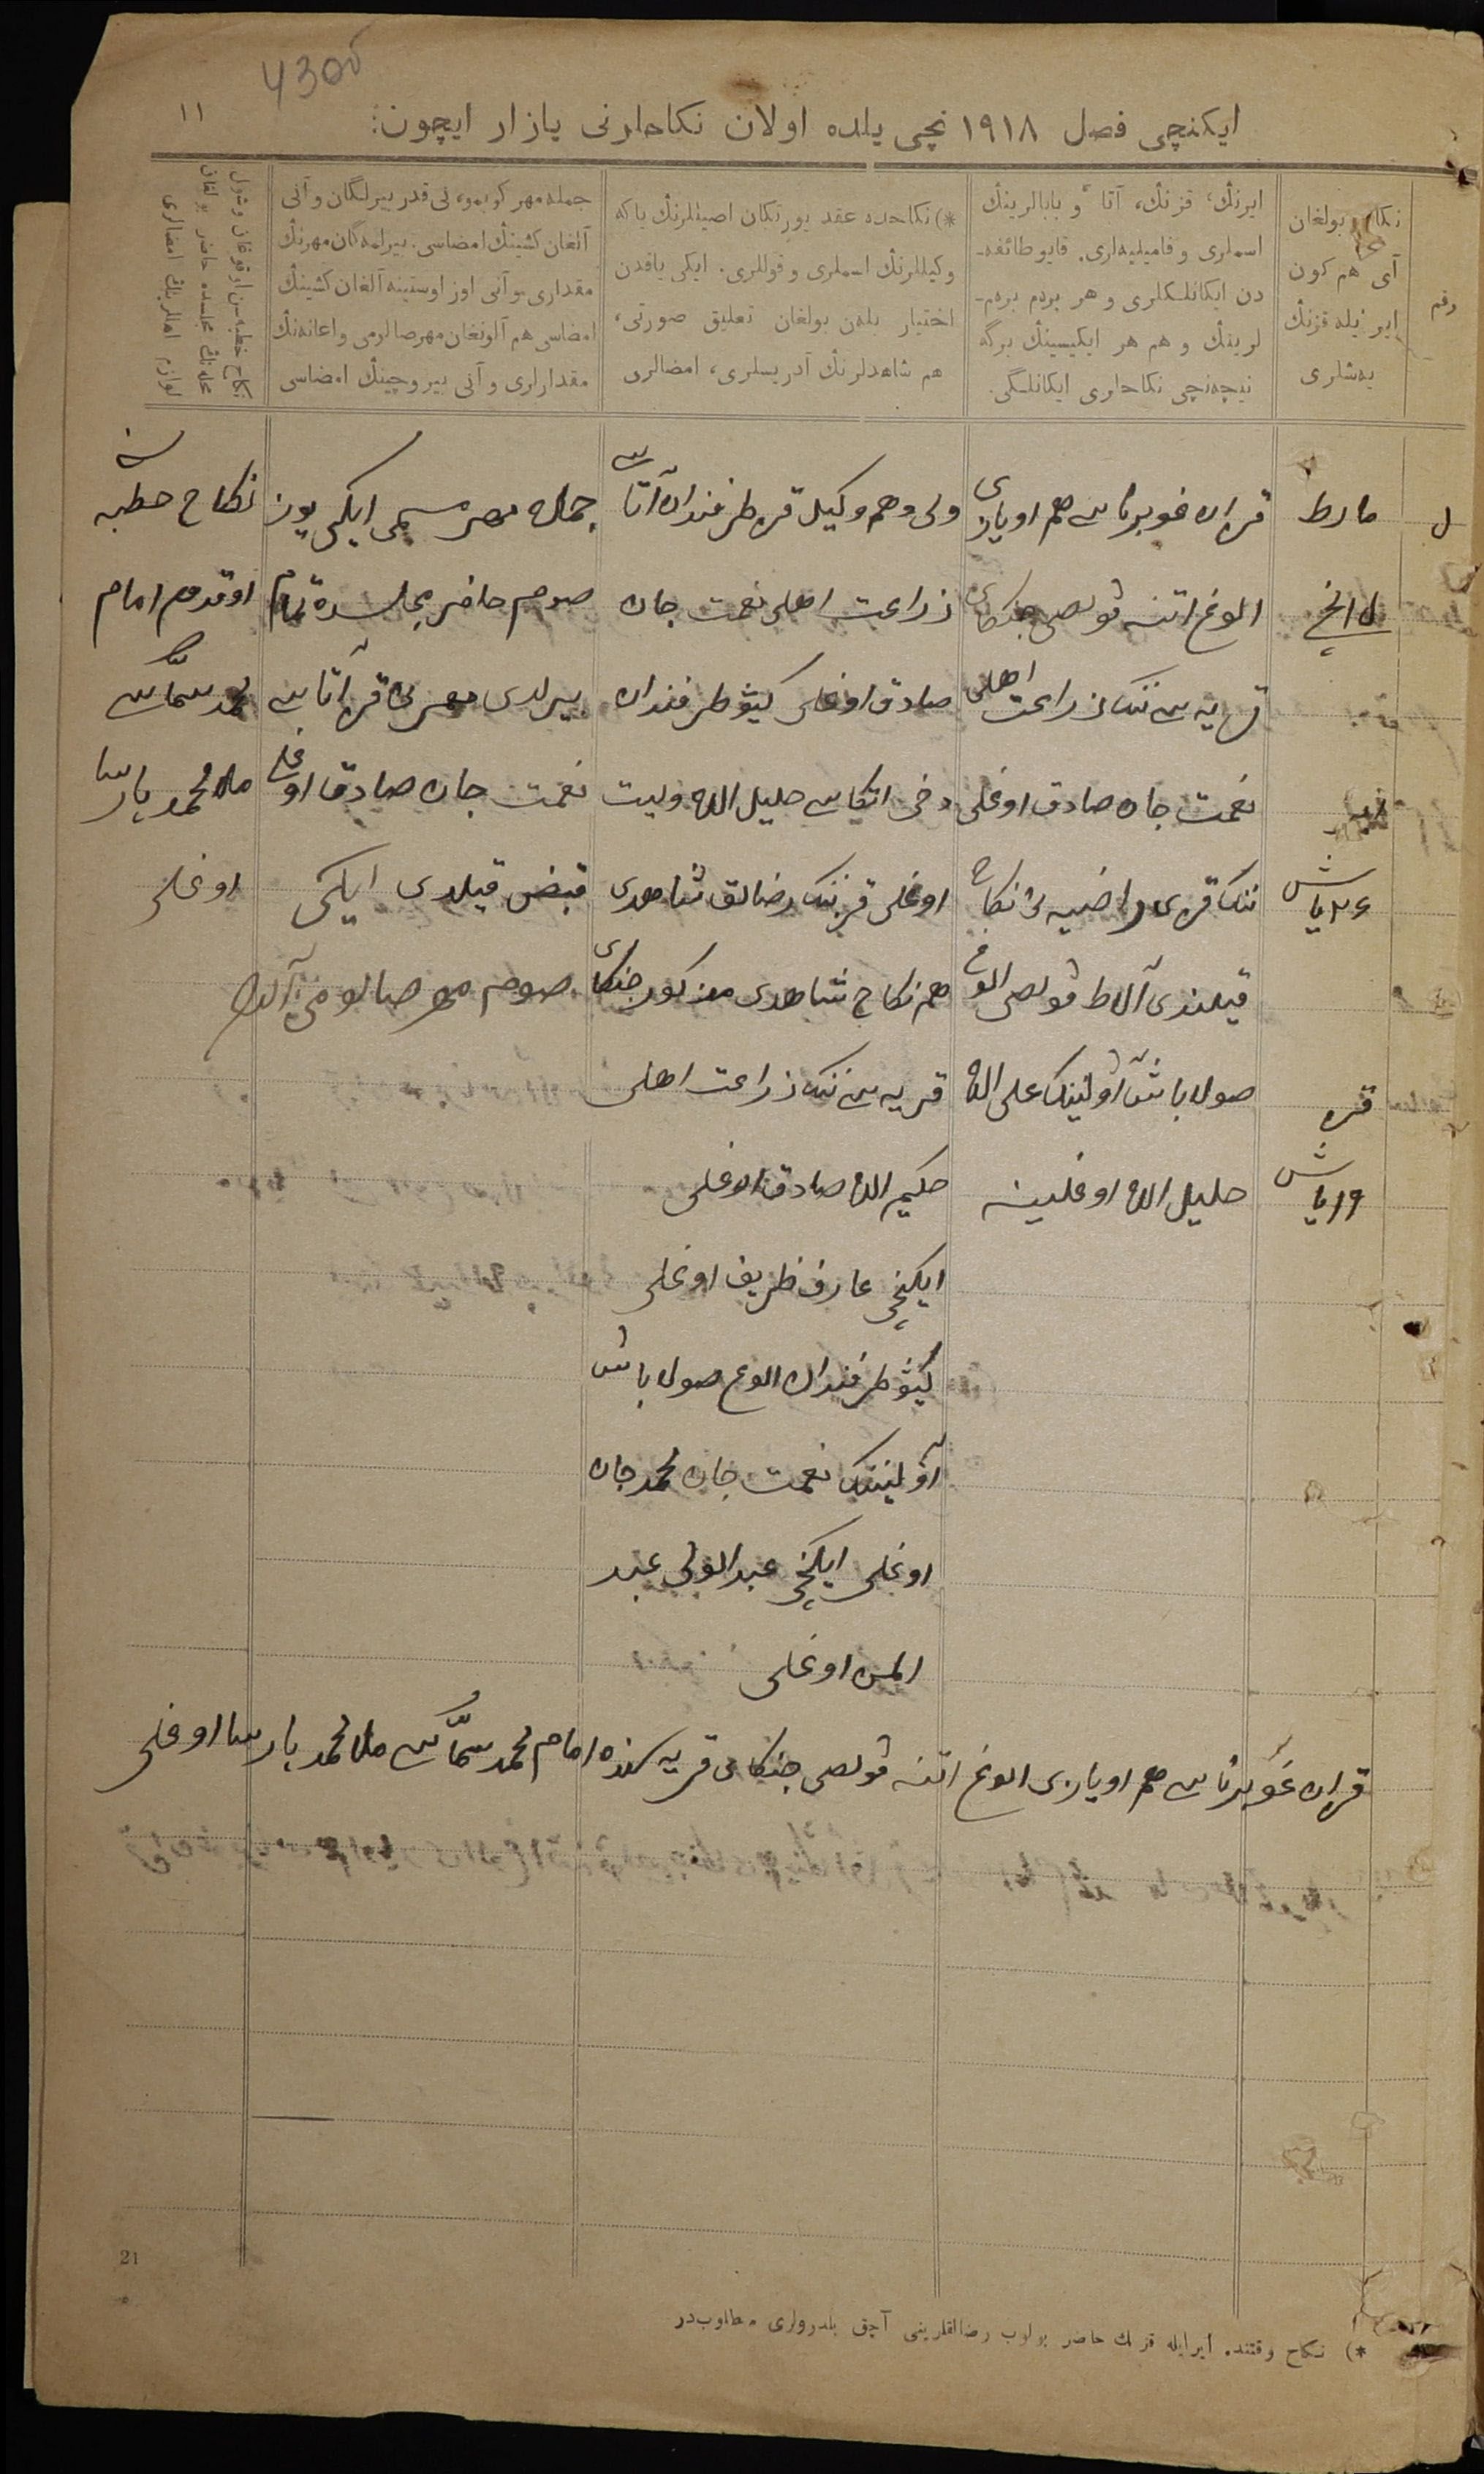 430
١١
ایکنچی فصل ١٩١٨ نچی یلده اولان نکاحلرنی یازار ایچون:
رقم
نکاح بولغان
آی هم کون
ایر ئیله قزنڭ
یه‌شلری
ایرنڭ، قزنڭ، آتا و بابالرینڭ
اسملری و فامیلیه‌لری. قایو طائفه‌ـ
دن ایکانلکلری و هر بردم بردم‌ـ
لرینڭ و هم هر ایکیسینڭ برگه
نیچه‌نچی نکاحلری ایکانلگی.
*) نکاحده عقد یورتکان اصیللرنڭ یا که
وکیللرنڭ اسملری و قوللری. ایکی یاقدن
اختیار بله‌ن بولغان تعلیق صورتی،
هم شاهدلرنڭ آدریسلری، امضالری
جمله مهر کوبمو، نی قدر بیرلگان و آنی
آلغان کشینڭ امضاسی. بیرلمه‌گان مهرنڭ
مقداری و آنی اوز اوستینه آلغان کشینڭ
امضاسی هم آلونغان مهر صالومی و اعانه‌نڭ
مقدارلری و آنی بیروچینڭ امضاسی
نکاح خطبه‌سن اوقوغان و شول
محله‌نڭ مجلسده حاضر بولغان
لوازم اهللرینڭ امضالری
مارط
قزان غوبرناسی هم اویازی
الوغ اتنه ڤولصی جنکای
قریه سی ننک زراعت اهلی
نعمت جان صادق اوغلی
ننک قزی راضیه نی نکاح
قیلندی آلاط ڤولصی الوغ
صولاباش آولینک علی الله
خلیل الله اوغلینه
٢۶ یاش
قزه
١٩ یاش
ولی و هم وکیل قز طرفندان آتاسی
زراعت اهلی نعمت جان
صادق اوغلی کیڤ طرفندان
دخی اتکاسی خلیل الله ولیت
اوغلی قزننک رضالق شاهدی
هم نکاح شاهدی مذکور جنکای
قریه سی ننک زراعت اهلی
حکیم الله صادق اوغلی
ایکنچی عارف ظریف اوغلی
کیڤ طرفندان الوغ صولاباش
آولیننک نعمت جان محمد جان
اوغلی ایکنچی عبدالولی عبد
المن اوغلی
جمله مهر مسمی ایکی یوز
صوم حاضر مجلسده تمام
بیرلدی مهرنی قز آتاسی
نعمت جان صادق اوغلی
قبض قیلدی ایکی
صوم مهر صالومی آلدم
نکاح خطبه سی
اوقدم امام
محمد
ملا محمد یارسا
اوغلی
قزان غوبرناسی هم اویازی الوغ اتنه ڤولصی جنکای قریه سنده امام محمد ملا محمد یارسا اوغلی
21
*) نکاح وقتنده. ایرایله قزنڭ حاضر بولوب رضالقلرینی آچق بلدرولری مطلوب‌در